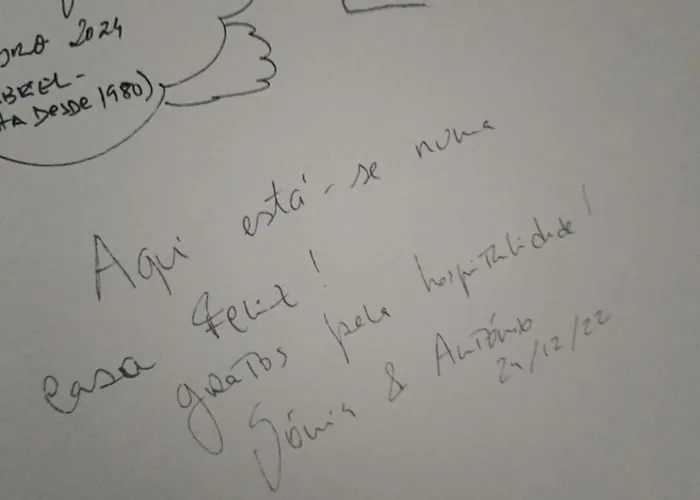 2024
DESDE 1980)
Aqui está-se numa
casa feliz!
gratos pela hospitalidade!
Sónia & António
21/12/22